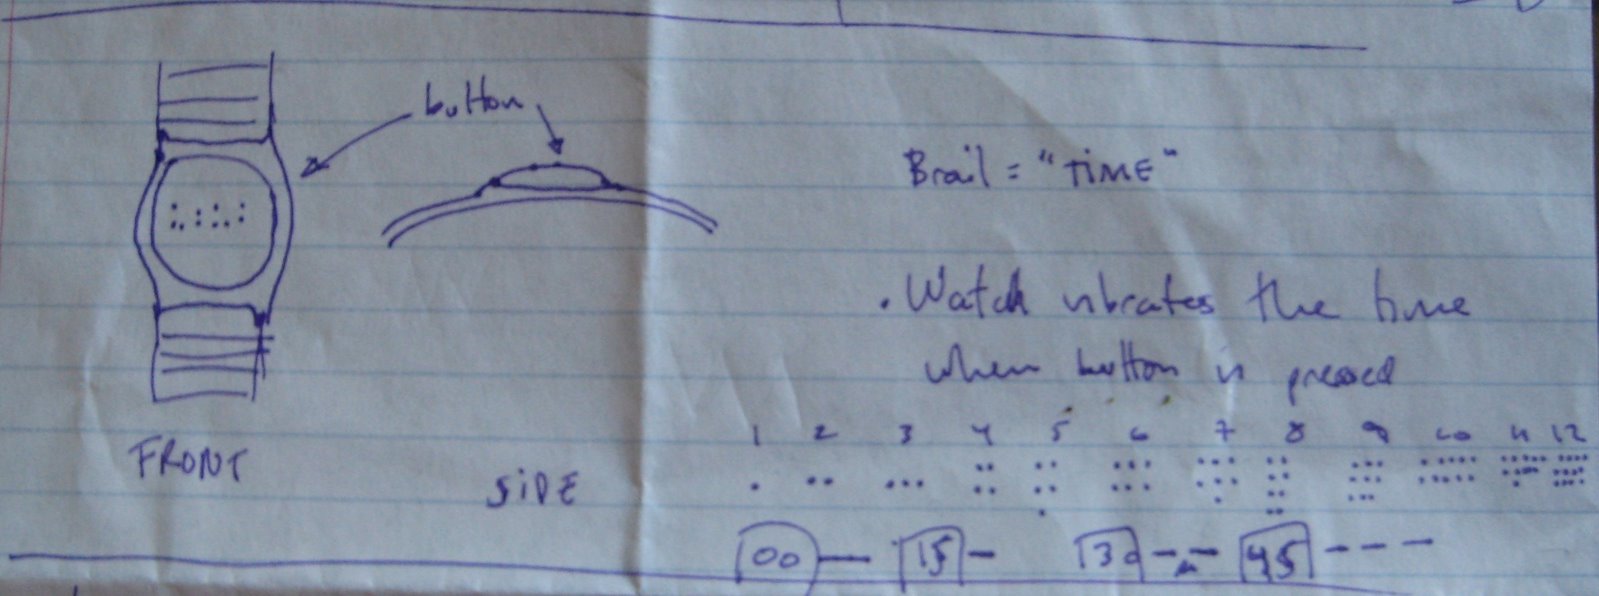 button
Brail = "TIME"
. Watch vibrates the time
when button is pressed
1 2 3 4 5 6 7 8 9 10 11 12
FRONT
SIDE
00 — 15 – 30 – – 45 – – –